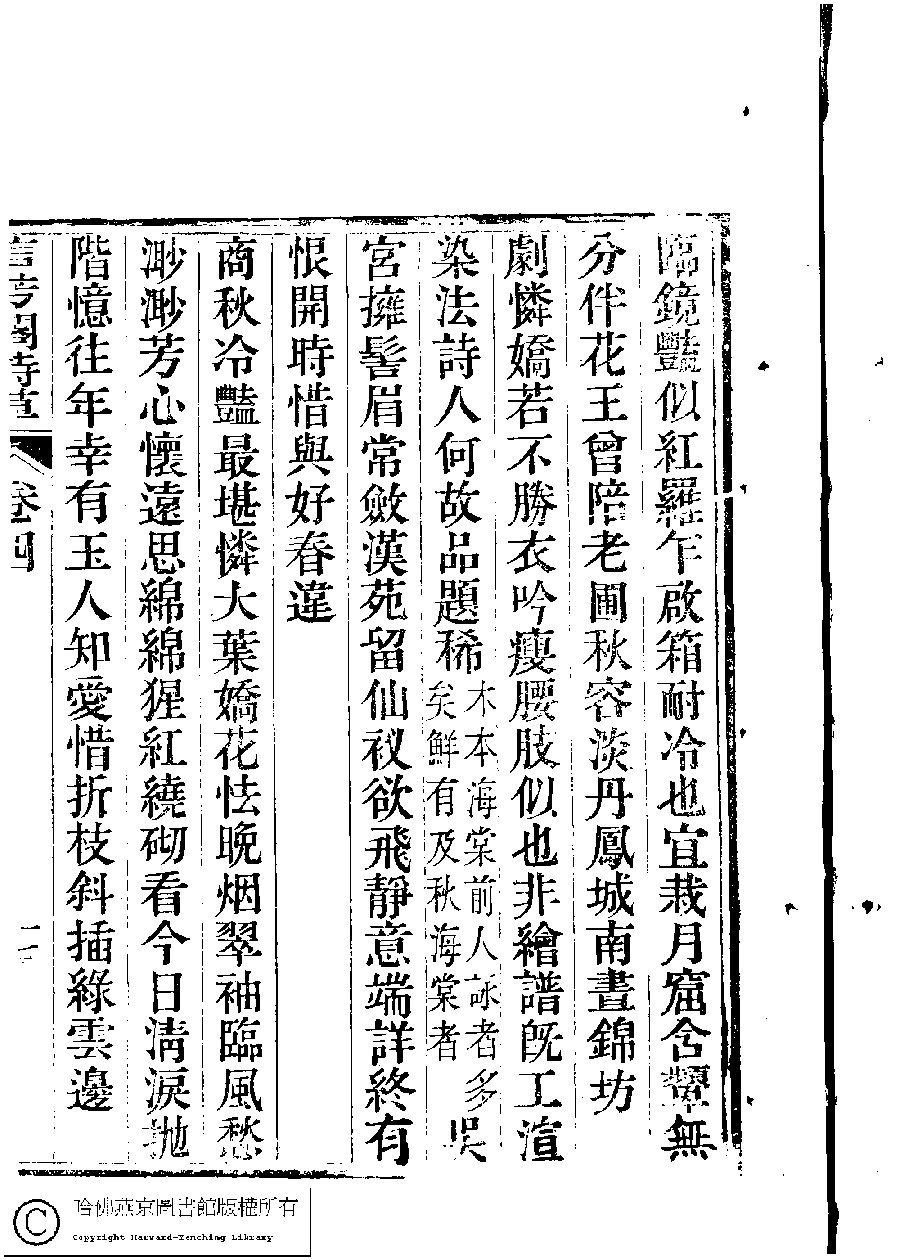 臨鏡豔似紅羅乍啟箱耐冷也宜栽月窟含顰無
分伴花王曾陪老圃秋容淡丹鳳城南晝錦坊
劇憐嬌若不勝衣吟瘦腰肢似也非繪譜旣工渲
染法詩人何故品題稀木本海棠前人詠者多矣鮮有及秋海棠者吳
宮擁髻眉常斂漢苑留仙衩欲飛靜意端詳終有
恨開時惜與好春違
商秋冷豔最堪憐大葉嬌花怯晚烟翠袖臨風愁
渺渺芳心懷遠思綿綿猩紅繞砌看今日清淚拋
階憶往年幸有玉人知愛惜折枝斜插綠雲邊
信芳閣詩草
卷四
哈佛燕京圖書館版權所有
Copyright Harvard-Yenching Library